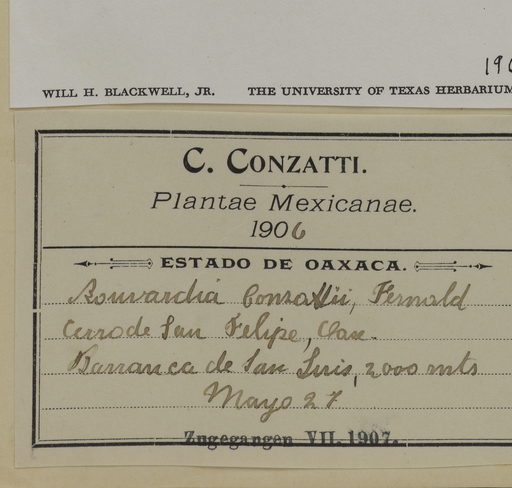 196
WILL H. BLACKWELL, JR. THE UNIVERSITY OF TEXAS HERBARIUM
C. CONZATTI.
Plantae Mexicanae.
1906
ESTADO DE OAXACA.
Bouvardia Conzattii, Fernald
Cerro de San Felipe, Oax.
Barranca de San Luis, 2000 mts
Mayo 27
Zugegangen VII. 1907.